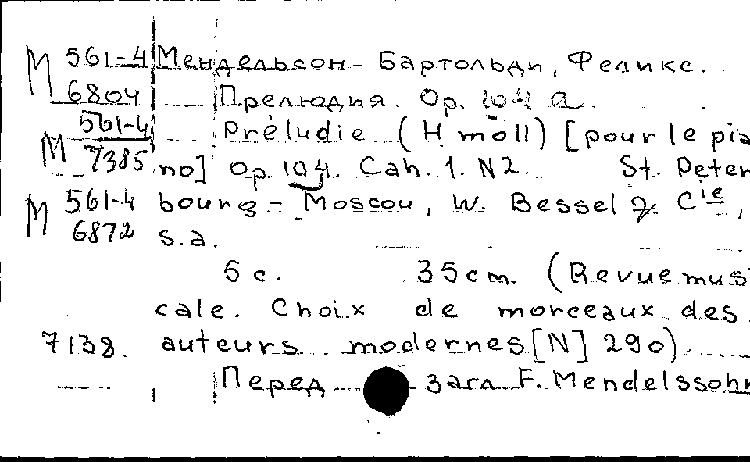 М 561-4 Мендельсон-Бартольди, Феликс.
6804 Прелюдия. Op. 104 a.
М 561-4 Préludie (H moll) [pour le pia
7385 no] Op. 104. Cah. 1. N2. St. Peter
М 561-4 bourg - Moscou, W. Bessel & Cie,
6872 s.a.
5 c. 35 cm. (Revue mus
cale. Choix de morceaux des
7138. auteurs modernes [N] 290).
Перед загл. F. Mendelssohn